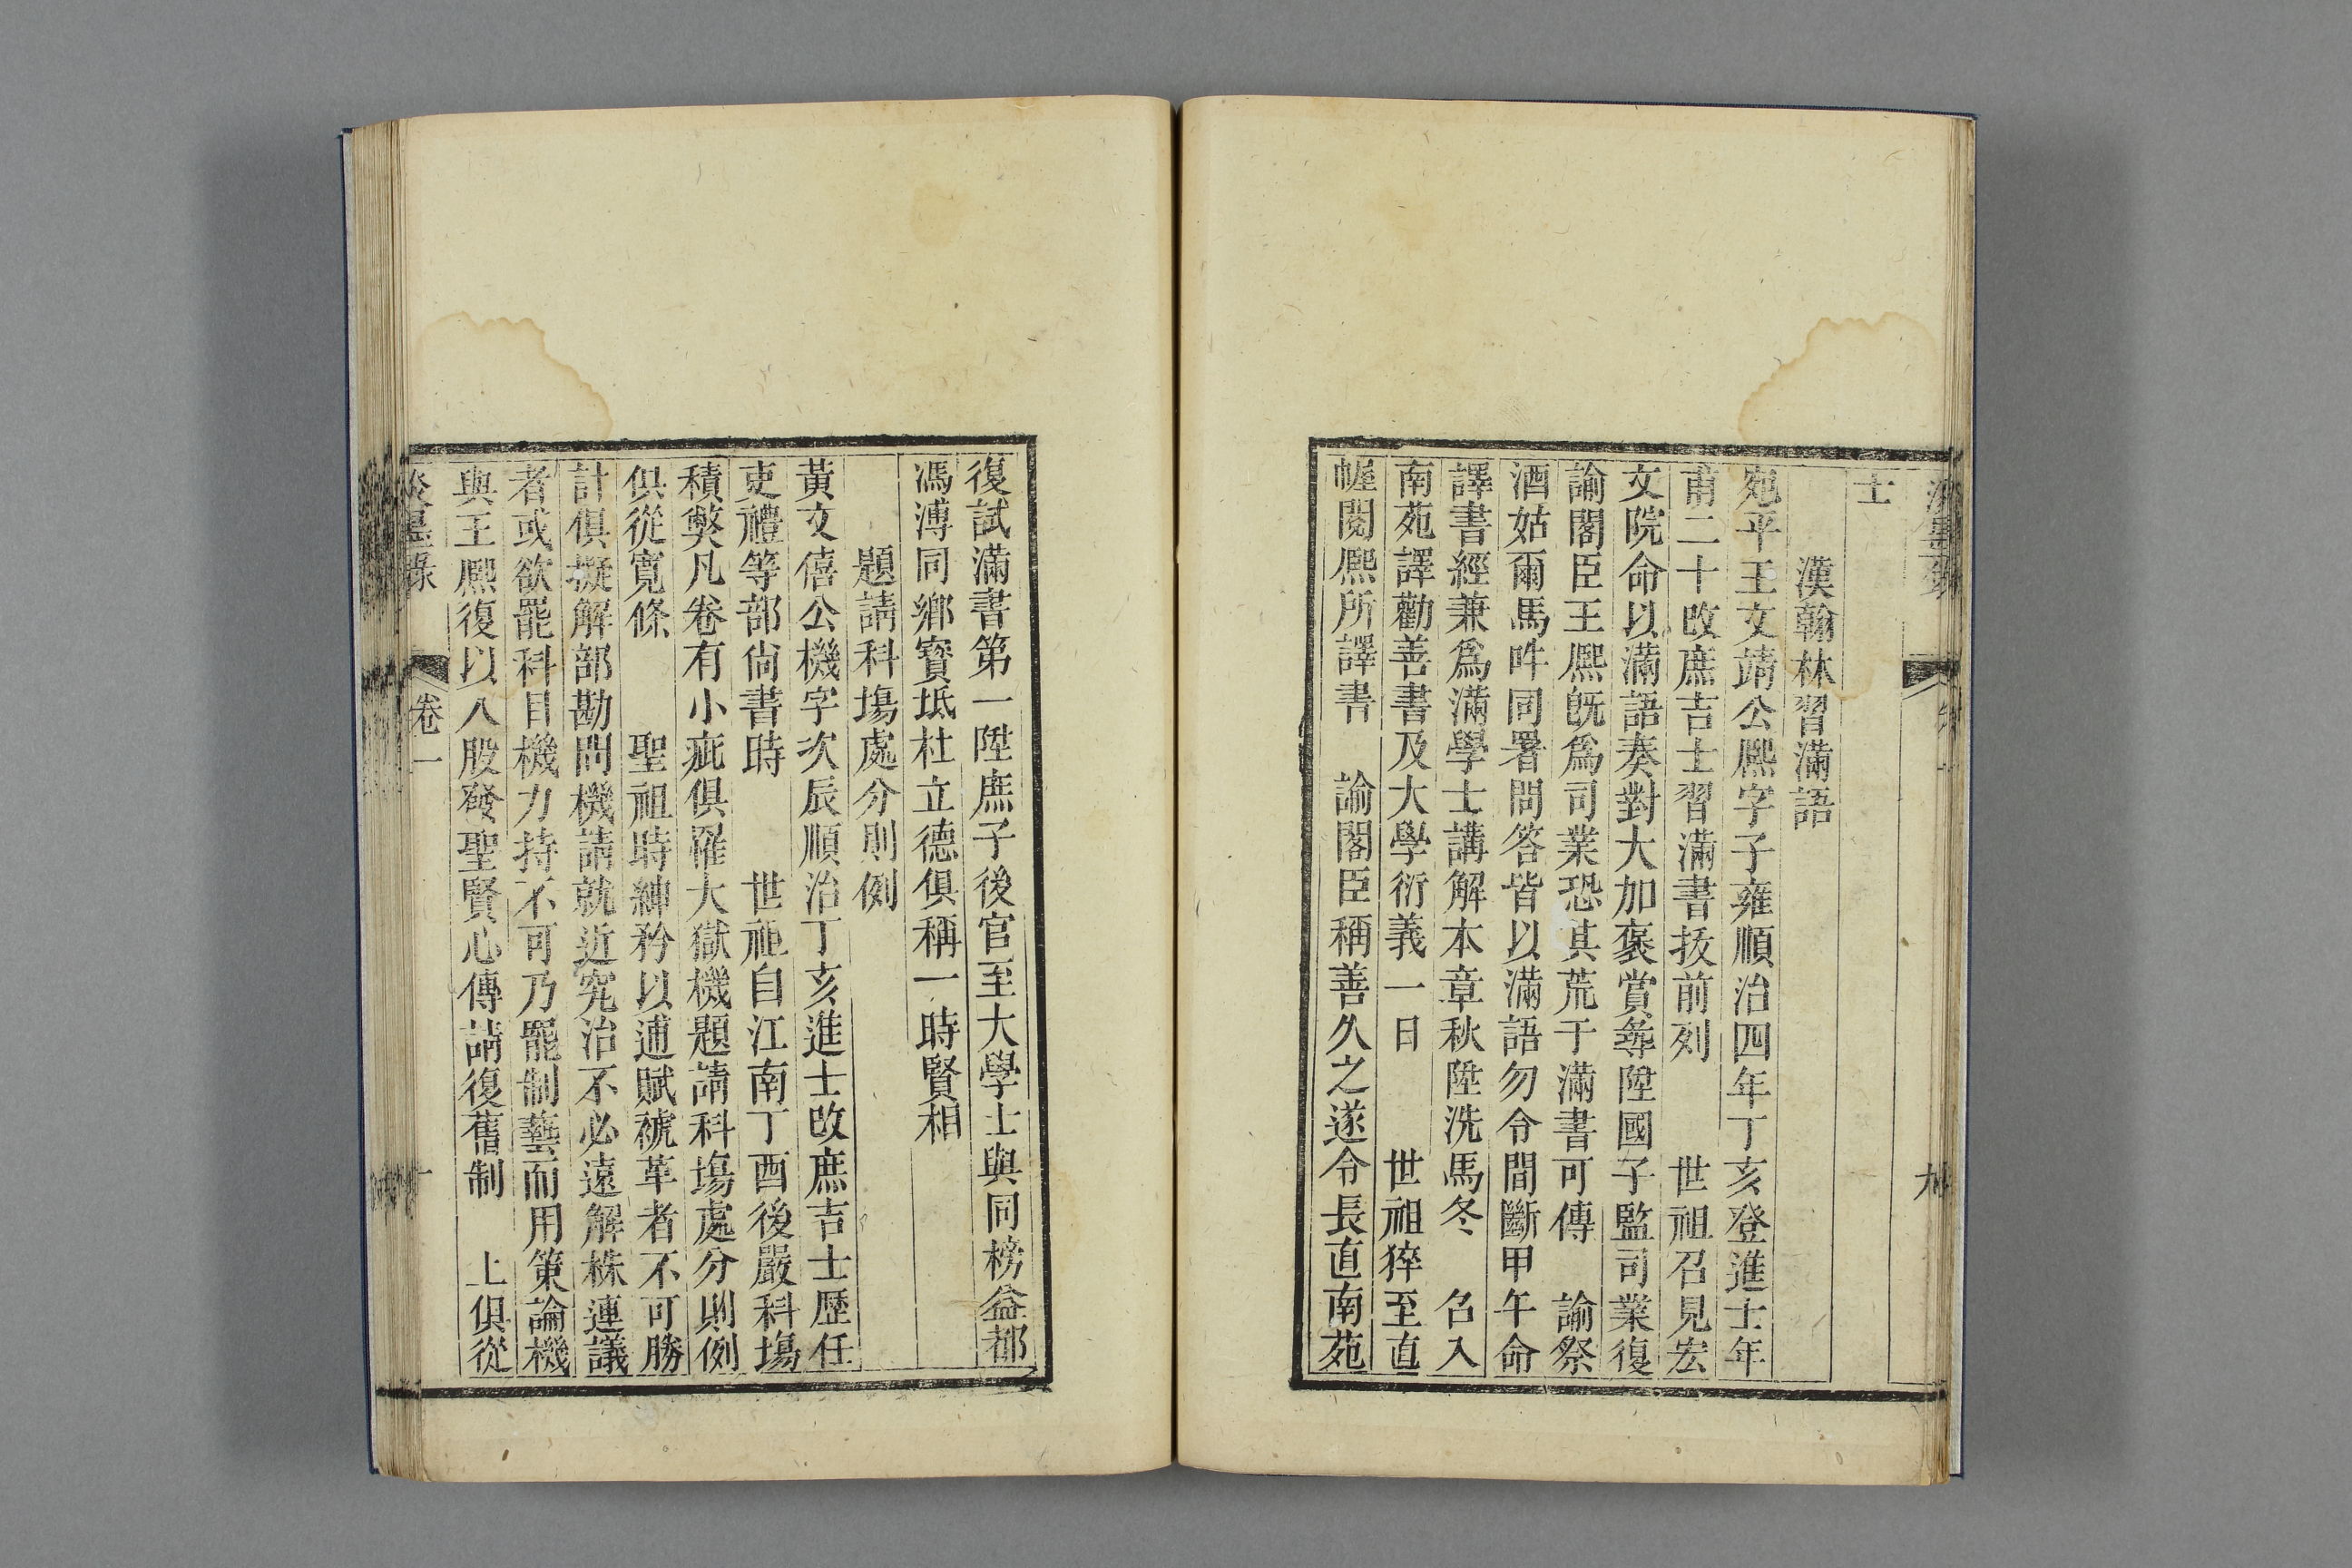 士
漢翰林習滿語
宛平王文靖公熈字子雍順治四年丁亥登進士年
甫二十改庶吉士習滿書拔前列　世祖召見宏
文院命以滿語奏對大加褒賞彝陞國子監司業復
諭閣臣王熈旣爲司業恐其荒于滿書可傳　諭祭
酒姑爾馬吽同署問答皆以滿語勿令間斷甲午命
譯書經兼爲滿學士講解本章秋陞洗馬冬　召入
南苑譯勸善書及大學衍義一日　世祖猝至直
幄閱熈所譯書　諭閣臣稱善久之遂令長直南苑
復試滿書第一陞庶子後官至大學士與同榜益都
馮溥同鄉寳坻杜立德俱稱一時賢相
題請科塲處分則例
黃文僖公機字次辰順治丁亥進士改庶吉士歷任
吏禮等部尙書時　世祖自江南丁酉後嚴科塲
積獘凡卷有小疵俱罹大獄機題請科塲處分則例
俱從寬條　聖祖時紳矜以逋賦褫革者不可勝
計俱擬解部勘問機請就近究治不必遠解株連議
者或欲罷科目機力持不可乃罷制藝而用策論機
與王熈復以八股發聖賢心傳請復舊制　上俱從
淡墨錄　卷一